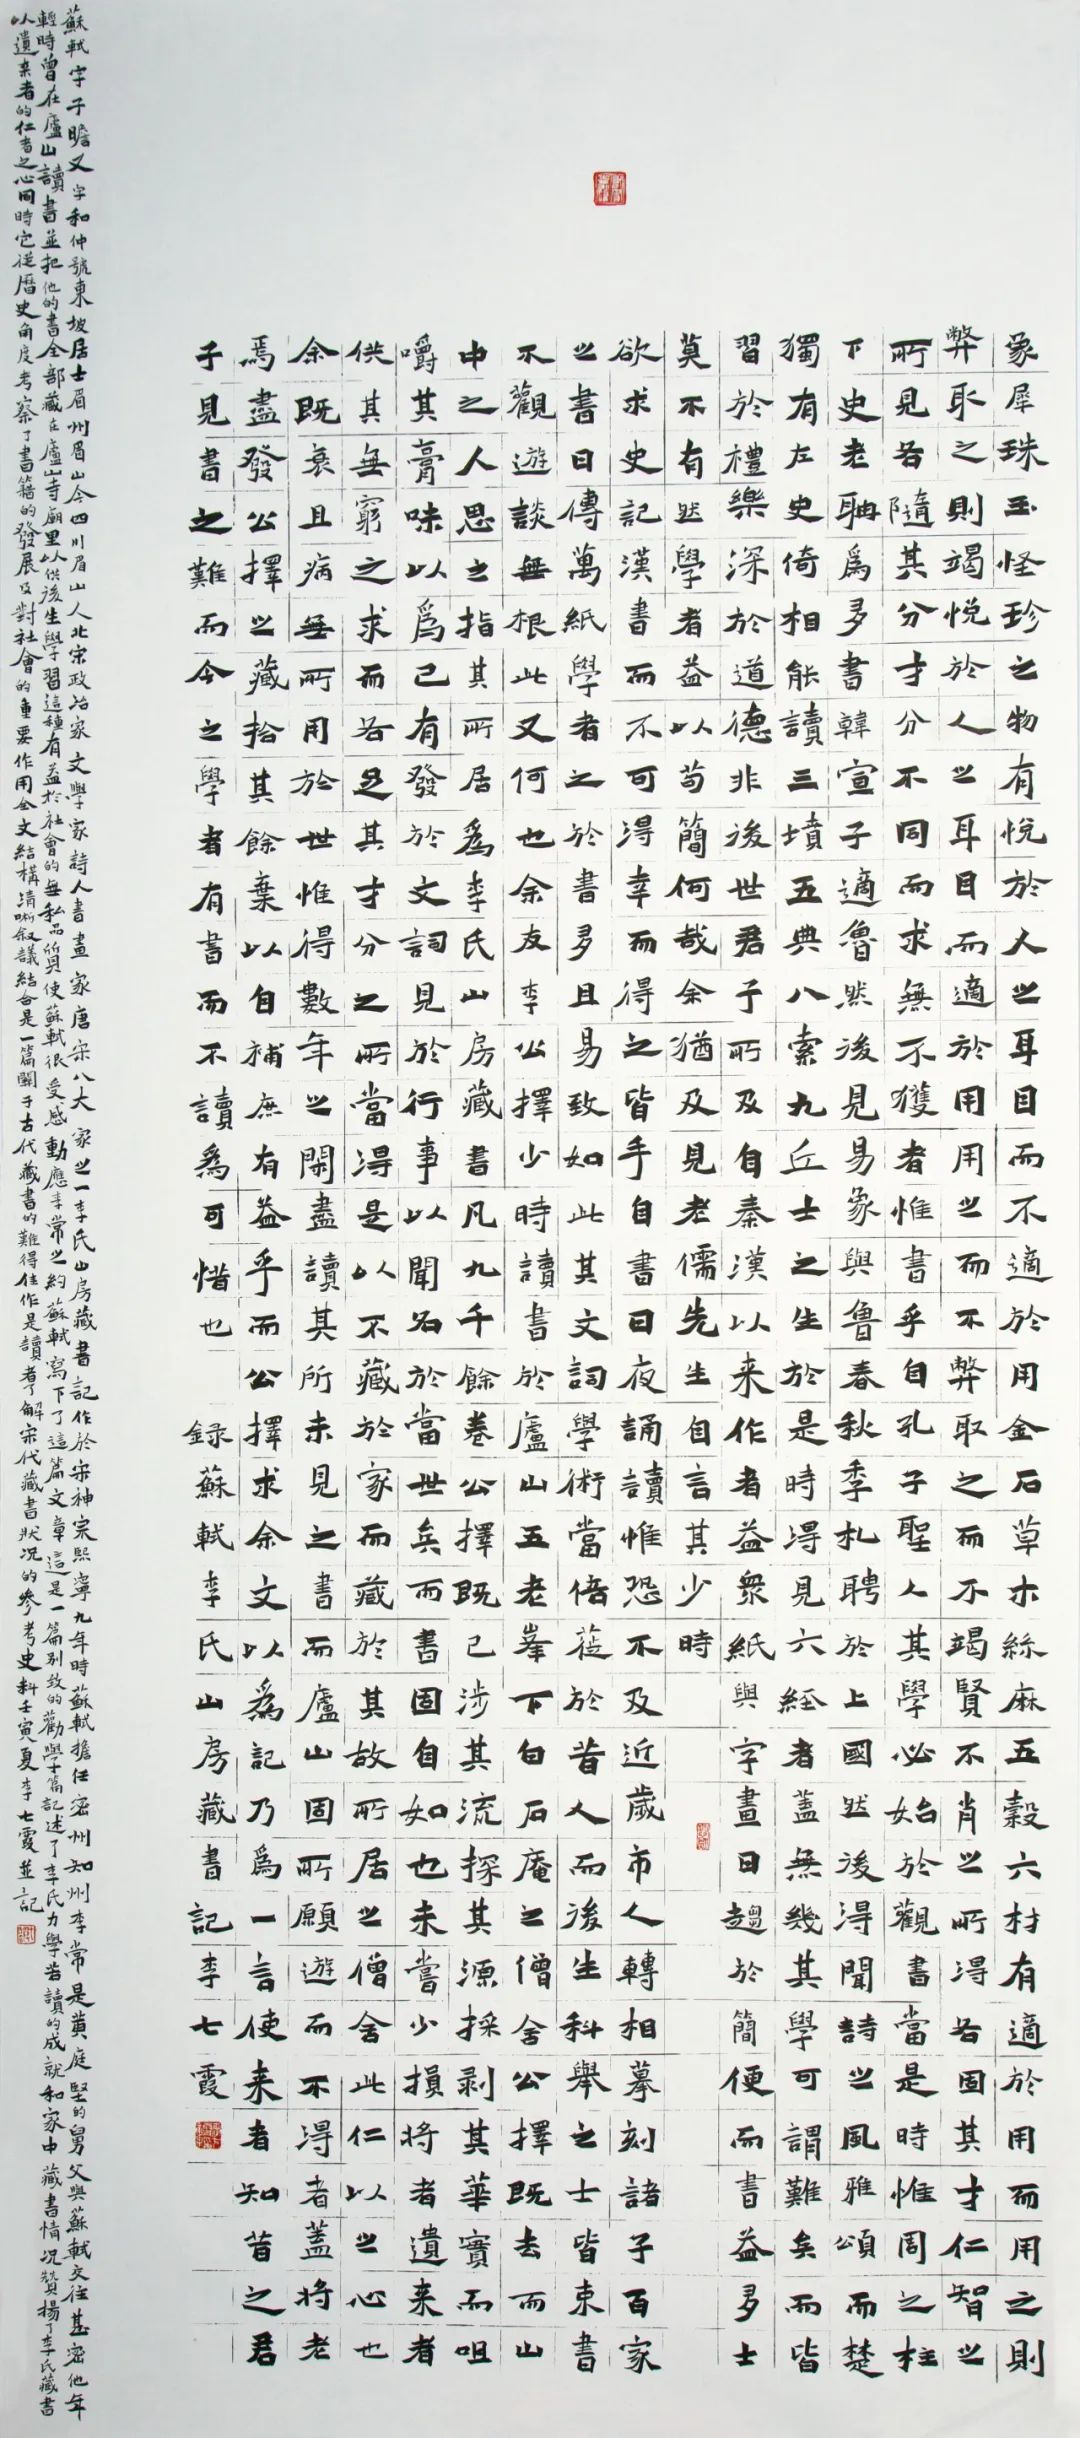 象犀珠玉怪珍之物有悅於人之耳目而不適於用金石草木絲麻五穀六材有適於用而用之則
弊取之則竭悅於人之耳目而適於用用之而不弊取之而不竭賢不肖之所得各因其才仁智之
所見各隨其分才分不同而求無不獲者惟書乎自孔子聖人其學必始於觀書當是時惟周之柱
下史老聃為多書韓宣子適魯然後見易象與魯春秋季札聘於上國然後得聞詩之風雅頌而楚
獨有左史倚相能讀三墳五典八索九丘士之生於是時得見六經者蓋無幾其學可謂難矣而皆
習於禮樂深於道德非後世君子所及自秦漢以来作者益眾紙與字畫日趨於簡便而書益多士
莫不有然學者益以苟簡何哉余猶及見老儒先生自言其少時
欲求史記漢書而不可得幸而得之皆手自書日夜誦讀惟恐不及近歲市人轉相摹刻諸子百家
之書日傳萬紙學者之於書多且易致如此其文詞學術當倍蓰於昔人而後生科舉之士皆束書
不觀遊談無根此又何也余友李公擇少時讀書於廬山五老峯下白石庵之僧舍公擇既去而山
中之人思之指其所居為李氏山房藏書凡九千餘卷公擇既已涉其流探其源採剥其華實而咀
嚼其膏味以為己有發於文詞見於行事以聞名於當世矣而書固自如也未嘗少損將者遺来者
供其無窮之求而各足其才分之所當得是以不藏於家而藏於其故所居之僧舍此仁以之心也
余既衰且病無所用於世惟得數年之閑盡讀其所未見之書而廬山固所願遊而不得者蓋將老
焉盡發公擇之藏拾其餘棄以自補庶有益乎而公擇求余文以為記乃為一言使来者知昔之君
子見書之難而今之學者有書而不讀為可惜也 録蘇軾李氏山房藏書記李七霞
蘇軾字子瞻又字和仲號東坡居士眉州眉山今四川眉山人北宋政治家文學家詩人書畫家唐宋八大家之一李氏山房藏書記作於宋神宗熙寧九年時蘇軾擔任密州知州李常是黄庭堅的舅父與蘇軾交往甚密他年
輕時曾在廬山讀書並把他的書全部藏在廬山寺廟里以供後生學習這種有益於社會的無私品質使蘇軾很受感動應李常之約蘇軾寫下了這篇文章這是一篇別致的勸學篇記述了李氏力學苦讀的成就和家中藏書情况贊揚了李氏藏書
以遺来者的仁者之心同時它從曆史角度考察了書籍的發展及對社會的重要作用全文結構清晰叙議結合是一篇關于古代藏書的難得佳作是讀者了解宋代藏書狀况的參考史料壬寅夏李七霞並記